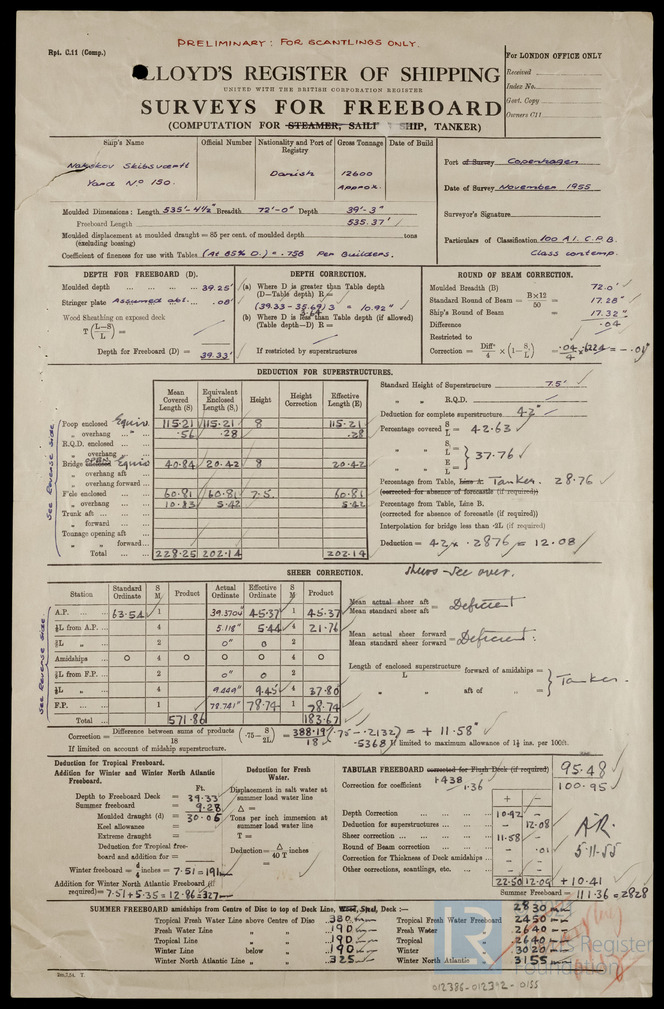 PRELIMINARY: FOR SCANTLINGS ONLY.
Rpt. C.11 (Comp.)
For LONDON OFFICE ONLY
LLOYD'S REGISTER OF SHIPPING
Received
UNITED WITH THE BRITISH CORPORATION REGISTER
Index No.
SURVEYS FOR FREEBOARD
Govt. Copy
Owners C11
(COMPUTATION FOR STEAMER, SAIL SHIP, TANKER)
Ship's Name
Official Number
Nationality and Port of Registry
Gross Tonnage
Date of Build
Nakskov Skibsvaerft
Yard No 150.
Danish
12600
Approx.
Port of Survey Copenhagen
Date of Survey November 1955
Surveyor's Signature
Particulars of Classification 100 A1. C.P.B.
Class contemp.
Moulded Dimensions: Length 535'-4½" Breadth 72'-0" Depth 39'-3"
Freeboard Length 535.37'
Moulded displacement at moulded draught = 85 per cent. of moulded depth tons
(excluding bossing)
Coefficient of fineness for use with Tables (At 85% D.) = .758 Per Builders.
DEPTH FOR FREEBOARD (D).
Moulded depth 39.25'
Stringer plate Assumed .08'
Wood Sheathing on exposed deck
T (L-S/L) =
Depth for Freeboard (D) = 39.33'
DEPTH CORRECTION.
(a) Where D is greater than Table depth
(D—Table depth) R =
(39.33 - 35.69) 3 = 10.92"
3.64
(b) Where D is less than Table depth (if allowed)
(Table depth—D) R =
If restricted by superstructures
ROUND OF BEAM CORRECTION.
Moulded Breadth (B) 72.0'
Standard Round of Beam = B×12/50 = 17.28"
Ship's Round of Beam = 17.32"
Difference .04
Restricted to
Correction = Diff/4 × (1-S₁/L) = .04/4 × .6224 = -.01
DEDUCTION FOR SUPERSTRUCTURES.
Mean Covered Length (S)
Equivalent Enclosed Length (S₁)
Height
Height Correction
Effective Length (E)
See Reverse Side
Poop enclosed Equiv 115.21 115.21 8 115.21
„ overhang .56 .28 .28
R.Q.D. enclosed
„ overhang
Bridge enclosed OPEN Equiv 40.84 20.42 8 20.42
„ overhang aft
„ overhang forward
F'cle enclosed 60.81 60.81 7.5 60.81
„ overhang 10.83 5.42 5.42
Trunk aft
„ forward
Tonnage opening aft
„ „ forward
Total 228.25 202.14 202.14
Standard Height of Superstructure 7.5'
„ „ R.Q.D.
Deduction for complete superstructure 42"
Percentage covered S/L = 42.63
„ „ S₁/L = } 37.76
„ „ E/L =
Percentage from Table, Line A Tanker. 28.76
(corrected for absence of forecastle (if required))
Percentage from Table, Line B.
(corrected for absence of forecastle (if required))
Interpolation for bridge less than ·2L (if required)
Deduction = 42 × .2876 = 12.08
SHEER CORRECTION.
Sheers - see over.
Station
Standard Ordinate
S M
Product
Actual Ordinate
Effective Ordinate
S M
Product
See Reverse Side.
A.P. 63.54 1 39.370" 45.37 1 45.37
⅙L from A.P. 4 5.118" 5.44 4 21.76
⅓L „ 2 0" 0 2
Amidships 0 4 0 0 0 4 0
⅓L from F.P. 2 0" 0 2
⅙L „ 4 9.449" 9.45 4 37.80
F.P. 1 78.741" 78.74 1 78.74
Total 571.86 183.67
Mean actual sheer aft / Mean standard sheer aft = Deficient
Mean actual sheer forward / Mean standard sheer forward = Deficient:
Length of enclosed superstructure / L forward of amidships =
„ „ aft of „ = } Tanker.
Correction = Difference between sums of products / 18 (·75 - S/2L) = 388.19/18 (.75 - .2132) = + 11.58"
.5368
If limited on account of midship superstructure.
If limited to maximum allowance of 1½ ins. per 100ft.
Deduction for Tropical Freeboard.
Addition for Winter and Winter North Atlantic Freeboard.
Ft.
Depth to Freeboard Deck = 39.33
Summer freeboard = 9.28
Moulded draught (d) = 30.05
Keel allowance =
Extreme draught =
Deduction for Tropical freeboard and addition for =
Winter freeboard = d/4 inches = 7.51 = 191
Addition for Winter North Atlantic Freeboard (if
required) = 7.51 + 5.35 = 12.86 = 327
Deduction for Fresh Water.
Displacement in salt water at summer load water line
Δ =
Tons per inch immersion at summer load water line
T =
Deduction = Δ/40 T inches
=
TABULAR FREEBOARD corrected for Flush Deck (if required) 95.48
Correction for coefficient 1.438/1.36 100.95
+ -
Depth Correction 10.92 -
Deduction for superstructures - 12.08
Sheer correction 11.58 -
Round of Beam correction - .01
Correction for Thickness of Deck amidships - -
Other corrections, scantlings, etc. - -
22.50 12.09 + 10.41
Summer Freeboard = 111.36 = 2828
5.11.55
SUMMER FREEBOARD amidships from Centre of Disc to top of Deck Line, Wood, Steel, Deck:— 2830
Tropical Fresh Water Line above Centre of Disc 380
Fresh Water Line „ „ 190
Tropical Line „ „ 190
Winter Line below „ 190
Winter North Atlantic Line „ „ 325
Tropical Fresh Water Freeboard 2450
Fresh Water „ 2640
Tropical „ 2640
Winter „ 3020
Winter North Atlantic „ 3155
2m.7.54. T.
Register
Foundation
012386-012392-0155